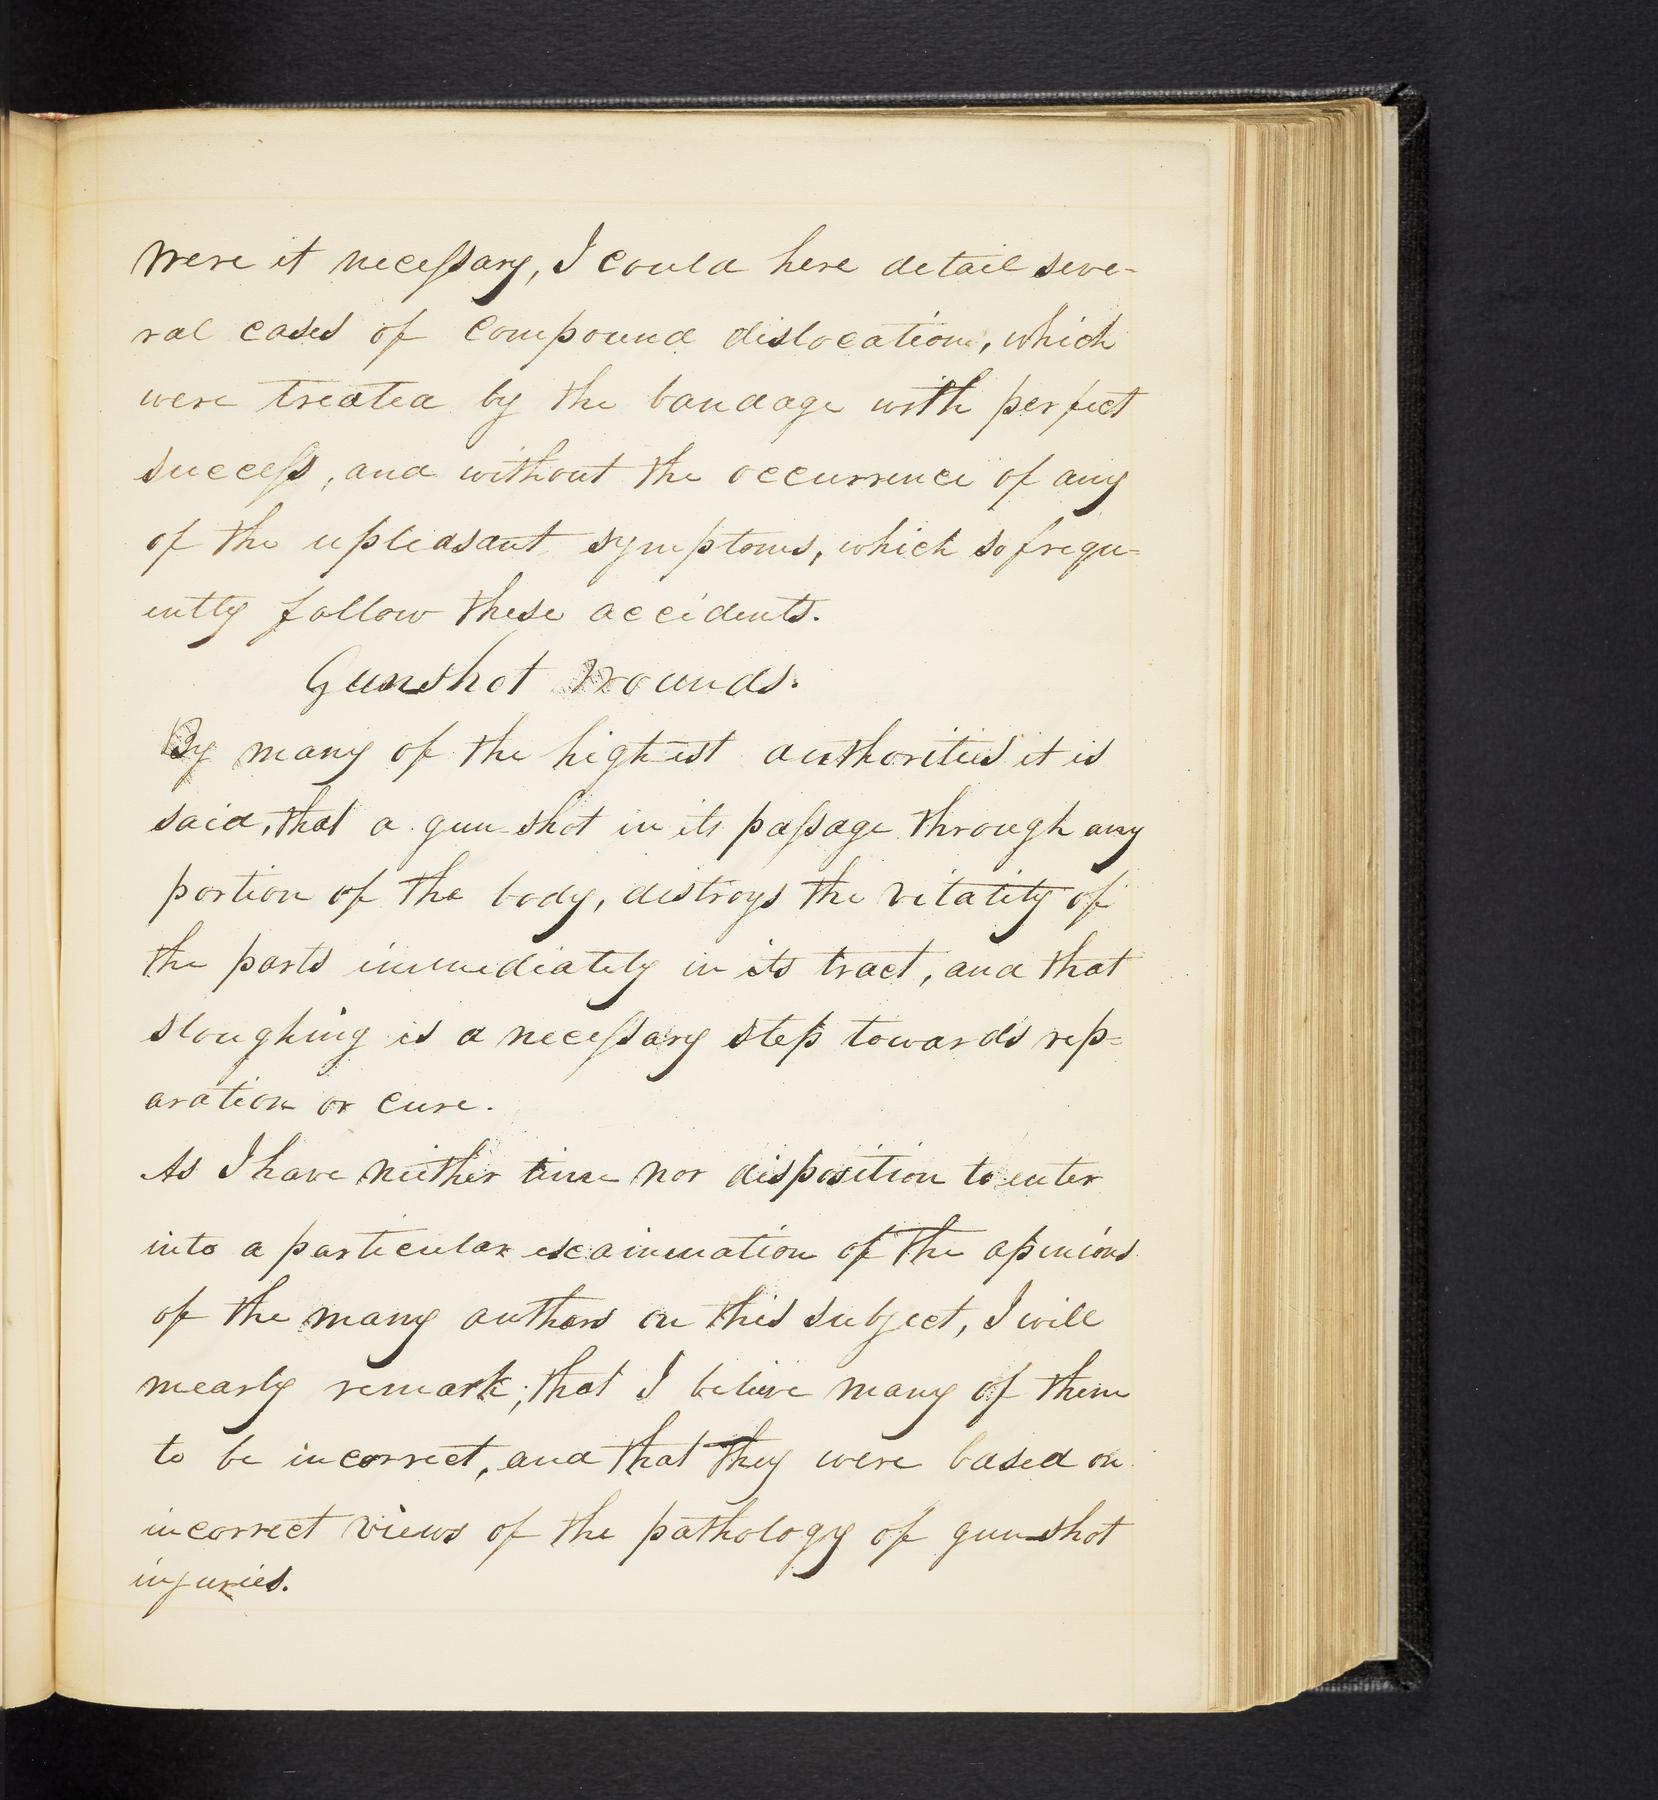 Were it necessary, I could here detail seve-
ral cases of compound dislocation, which
were treated by the bandage with perfect
success, and without the occurrence of any
of the upleasant symptoms, which so frequ-
ently follow these accidents.
Gunshot Wounds.
By many of the highest authorities it is
said, that a gun-shot in its passage through any
portion of the body, distroys the vitality of
the parts immediately in its tract, and that
sloughing is a necessary step towards rep-
aration or cure.
As I have neither time nor disposition to enter
into a particular examination of the opinions
of the many authors on this subject, I will
mearly remark, that I believe many of them
to be incorrect, and that they were based on
incorrect views of the pathology of gun-shot
injuries.